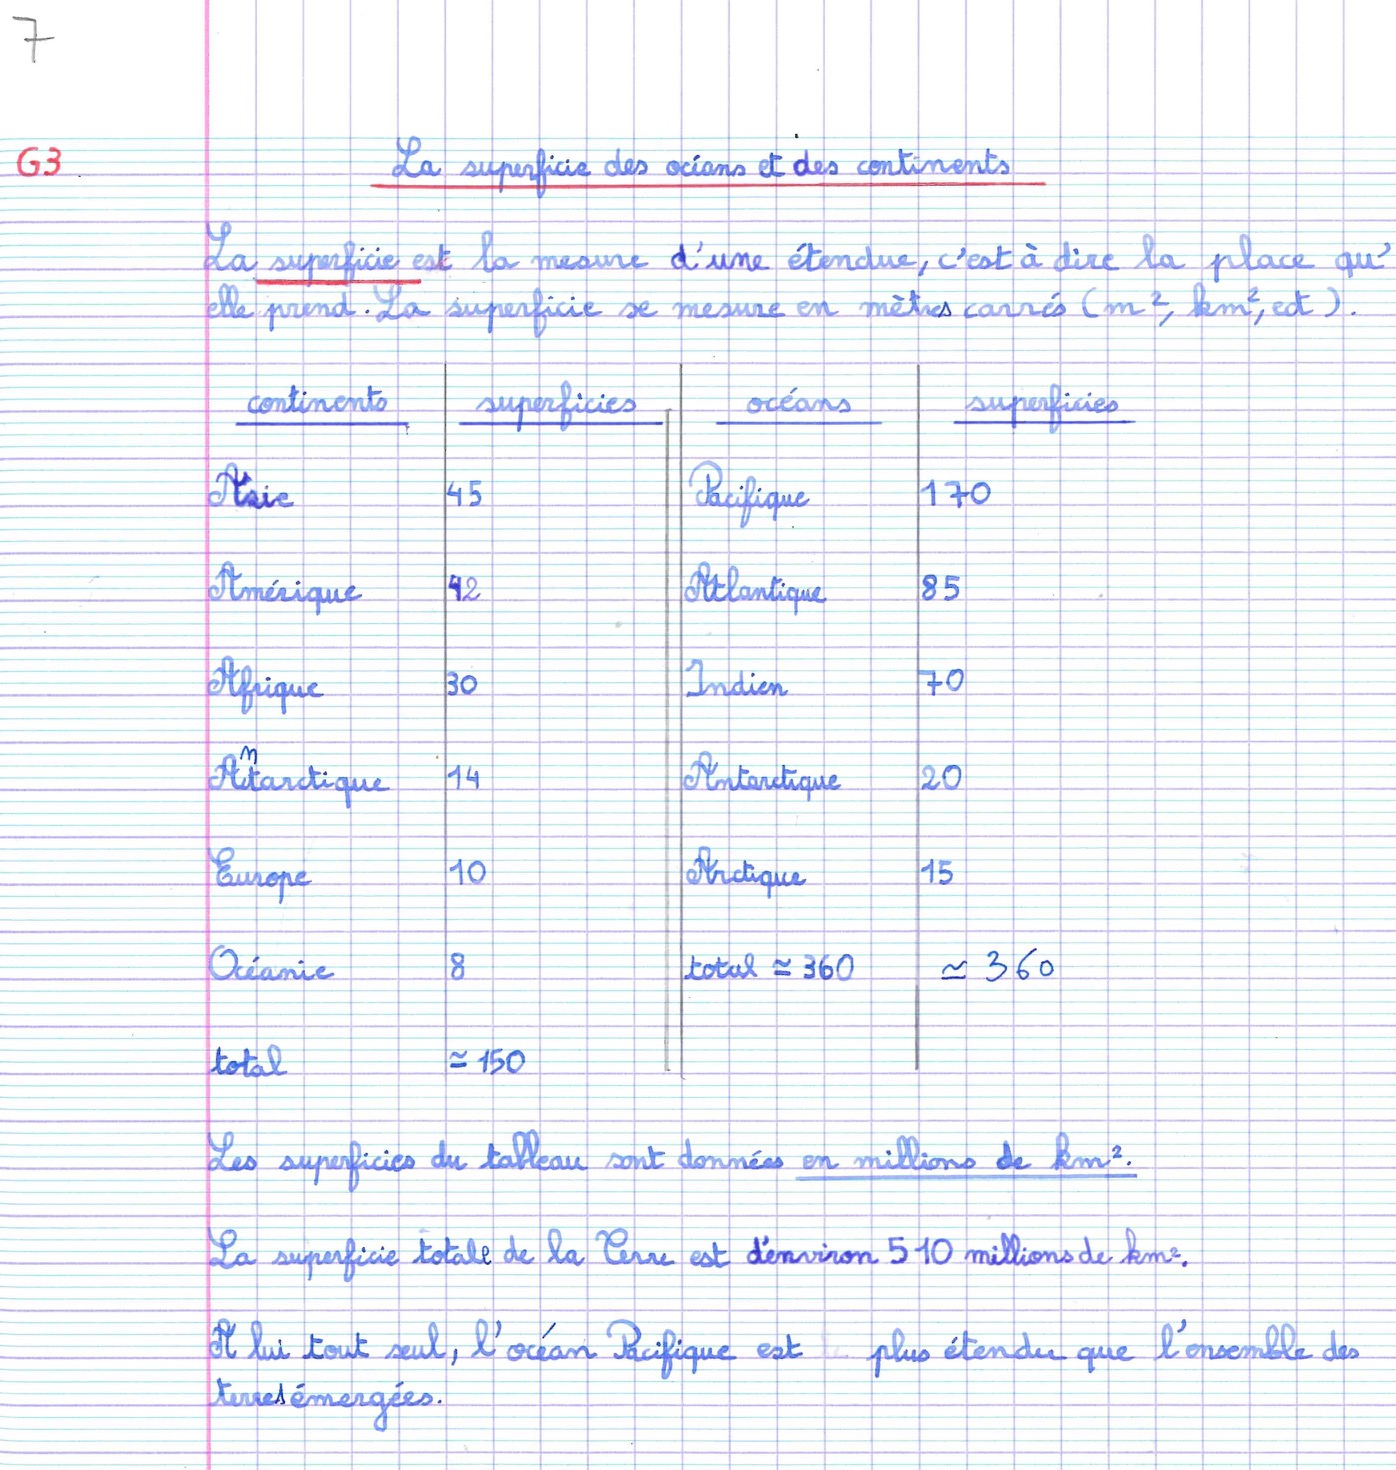 7
G3
La superficie des océans et des continents
La superficie est la mesure d'une étendue, c'est à dire la place qu'
elle prend. La superficie se mesure en mètres carrés (m², km², ect).
continents superficies océans superficies
Asie 45 Pacifique 170
Amérique 42 Atlantique 85
Afrique 30 Indien 70
Antarctique 14 Antarctique 20
Europe 10 Arctique 15
Océanie 8 total ≃ 360 ≃ 360
total ≃ 150
Les superficies du tableau sont données en millions de km².
La superficie totale de la Terre est d'environ 510 millions de km².
A lui tout seul, l'océan Pacifique est plus étendu que l'ensemble des
terres émergées.